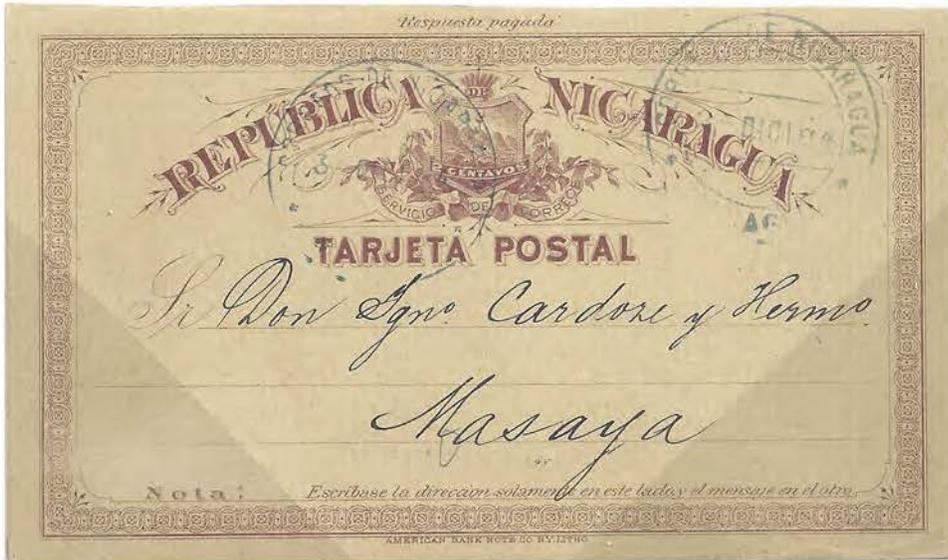 Respuesta pagada
REPUBLICA DE NICARAGUA
CENTAVOS
SERVICIO DE CORREOS
TARJETA POSTAL
DE NICARAGUA
AG
Sr Don Igno. Cardoze y Hermo.
Masaya
Nota: Escribase la direccion solamente en este lado, y el mensaje en el otro.
AMERICAN BANK NOTE CO. N.Y. LITHO.